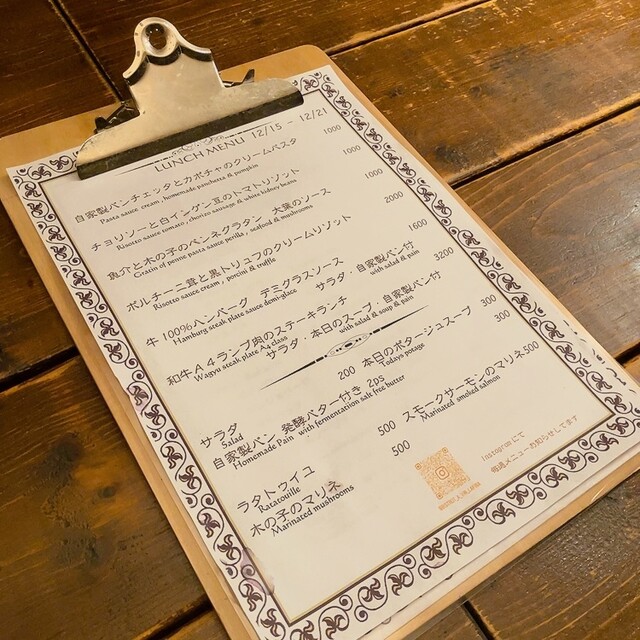 LUNCH MENU 12/15 - 12/21
自家製パンチェッタとカボチャのクリームパスタ 1000
Pasta sauce cream , homemade panchetta & pumpkin
チョリソーと白インゲン豆のトマトリゾット 1000
Risotto sauce tomato , chorizo sausage & white kidney beans
魚介と木の子のペンネグラタン 大葉のソース 1000
Gratin of penne pasta sauce perilla , seafood & mushrooms
ポルチーニ茸と黒トリュフのクリームリゾット 2000
Risotto sauce cream , porcini & truffle
牛100%ハンバーグ デミグラスソース サラダ・自家製パン付 1600
Hamburg steak plate sauce demi-glace with salad & pain
和牛A4ランプ肉のステーキランチ 3200
Wagyu steak plate A4 class
サラダ・本日のスープ・自家製パン付
with salad & soup & pain
サラダ 200 本日のポタージュスープ 300
Salad Todays potage
自家製パン 発酵バター付き 2ps 300
Homemade Pain with fermentation salt free butter
ラタトウイユ 500 スモークサーモンのマリネ 500
Ratatouille Marinated smoked salmon
木の子のマリネ 500
Marinated mushrooms
Instagram にて
毎週メニューお知らせしてます